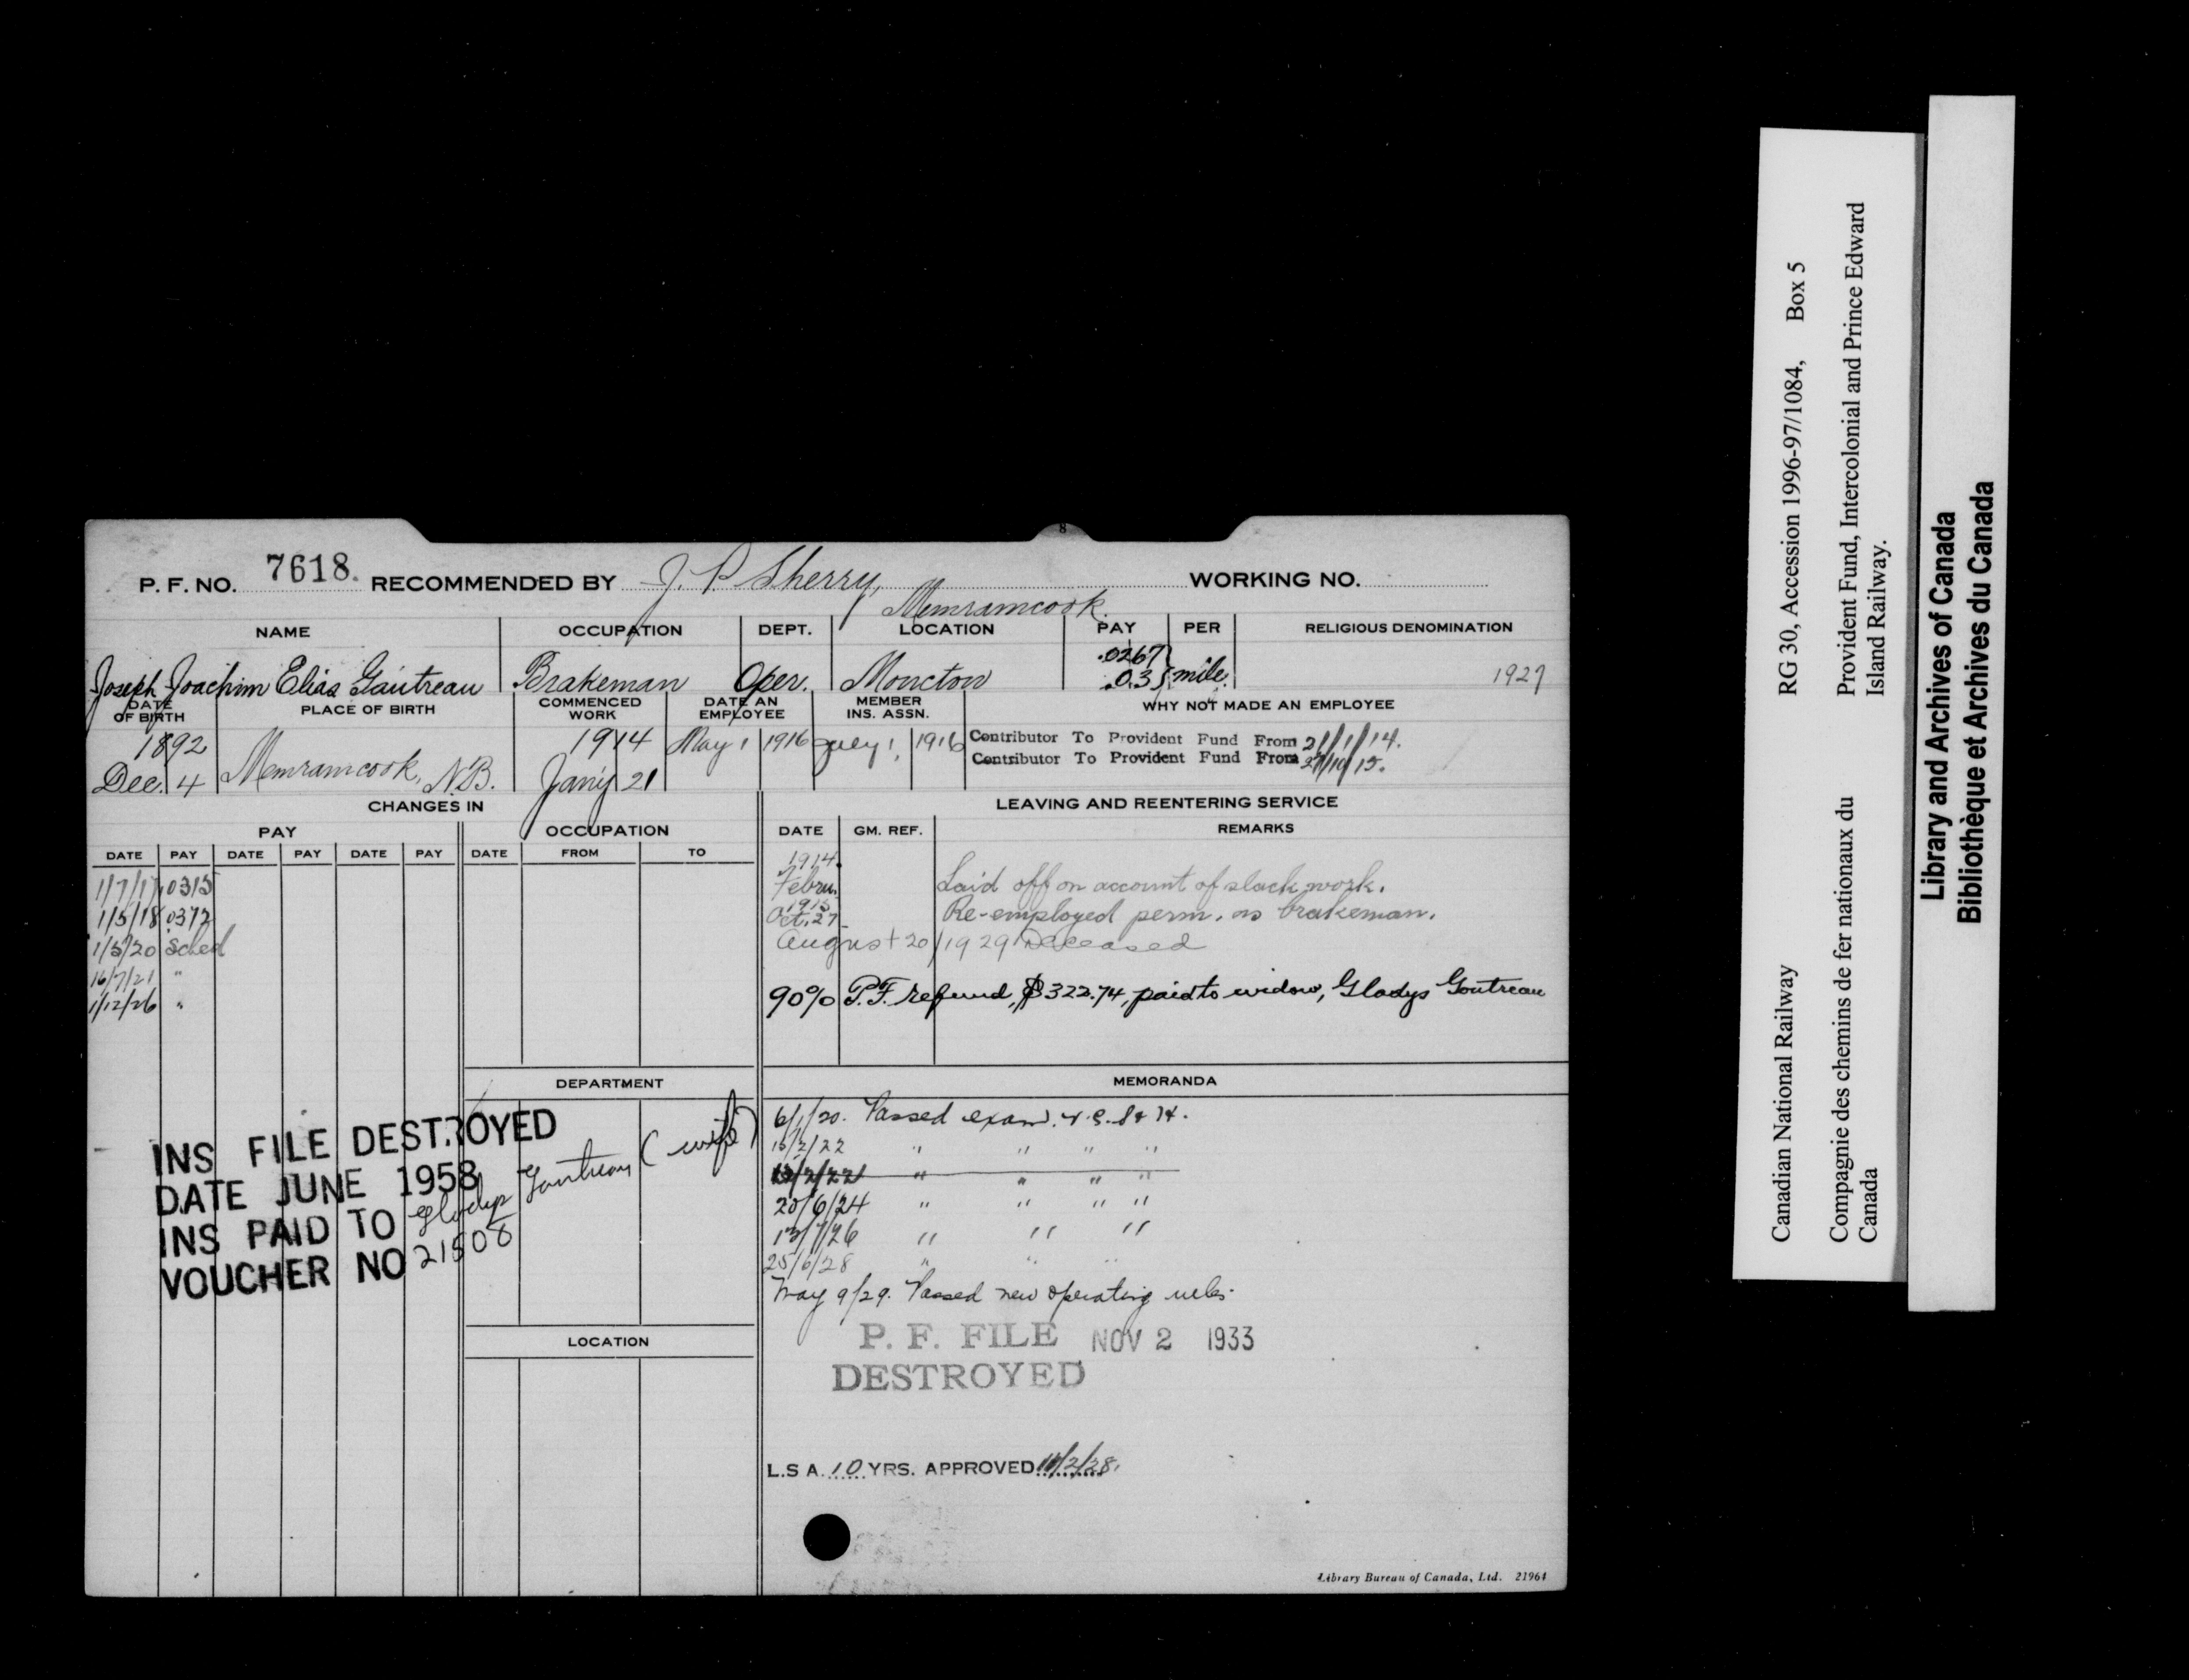 8
P. F. NO. 7618. RECOMMENDED BY J. P. Sherry, Memramcook. WORKING NO.
NAME OCCUPATION DEPT. LOCATION PAY PER RELIGIOUS DENOMINATION
Joseph Joachim Elias Gautreau Brakeman Oper. Moncton .0267 .03 } mile. 1927
DATE OF BIRTH PLACE OF BIRTH COMMENCED WORK DATE AN EMPLOYEE MEMBER INS. ASSN. WHY NOT MADE AN EMPLOYEE
1892 Dec. 4 Memramcook, N.B. 1914 Jan'y 21 May 1 1916 July 1, 1916
Contributor To Provident Fund From 21/1/14.
Contributor To Provident Fund From 27/10/15.
CHANGES IN
PAY OCCUPATION
DATE PAY DATE PAY DATE PAY DATE FROM TO
1/7/17 .0315
1/5/18 .0372
1/5/20 Sched
16/7/21 "
1/12/26 "
LEAVING AND REENTERING SERVICE
DATE GM. REF. REMARKS
1914 Febru. Laid off on account of slack work.
1915 Oct. 27 Re-employed perm. as brakeman.
August 20/1929 Deceased
90% P.F. refund, $322.74, paid to widow, Gladys Goutreau
DEPARTMENT
INS FILE DESTROYED
DATE JUNE 1958
INS PAID TO Gladys Gautreau (wife)
VOUCHER NO 21508
LOCATION
MEMORANDA
6/1/20. Passed exam. v. c. s & H.
15/2/22 " " " "
13/2/22 " " " "
20/6/24 " " " "
13/7/26 " " "
25/6/28 " " "
May 9/29. Passed new operating rules.
P. F. FILE NOV 2 1933
DESTROYED
L.S A. 10 YRS. APPROVED 11/2/28.
Library Bureau of Canada, Ltd. 21964
Canadian National Railway RG 30, Accession 1996-97/1084, Box 5
Compagnie des chemins de fer nationaux du Provident Fund, Intercolonial and Prince Edward
Canada Island Railway.
Library and Archives of Canada
Bibliothèque et Archives du Canada